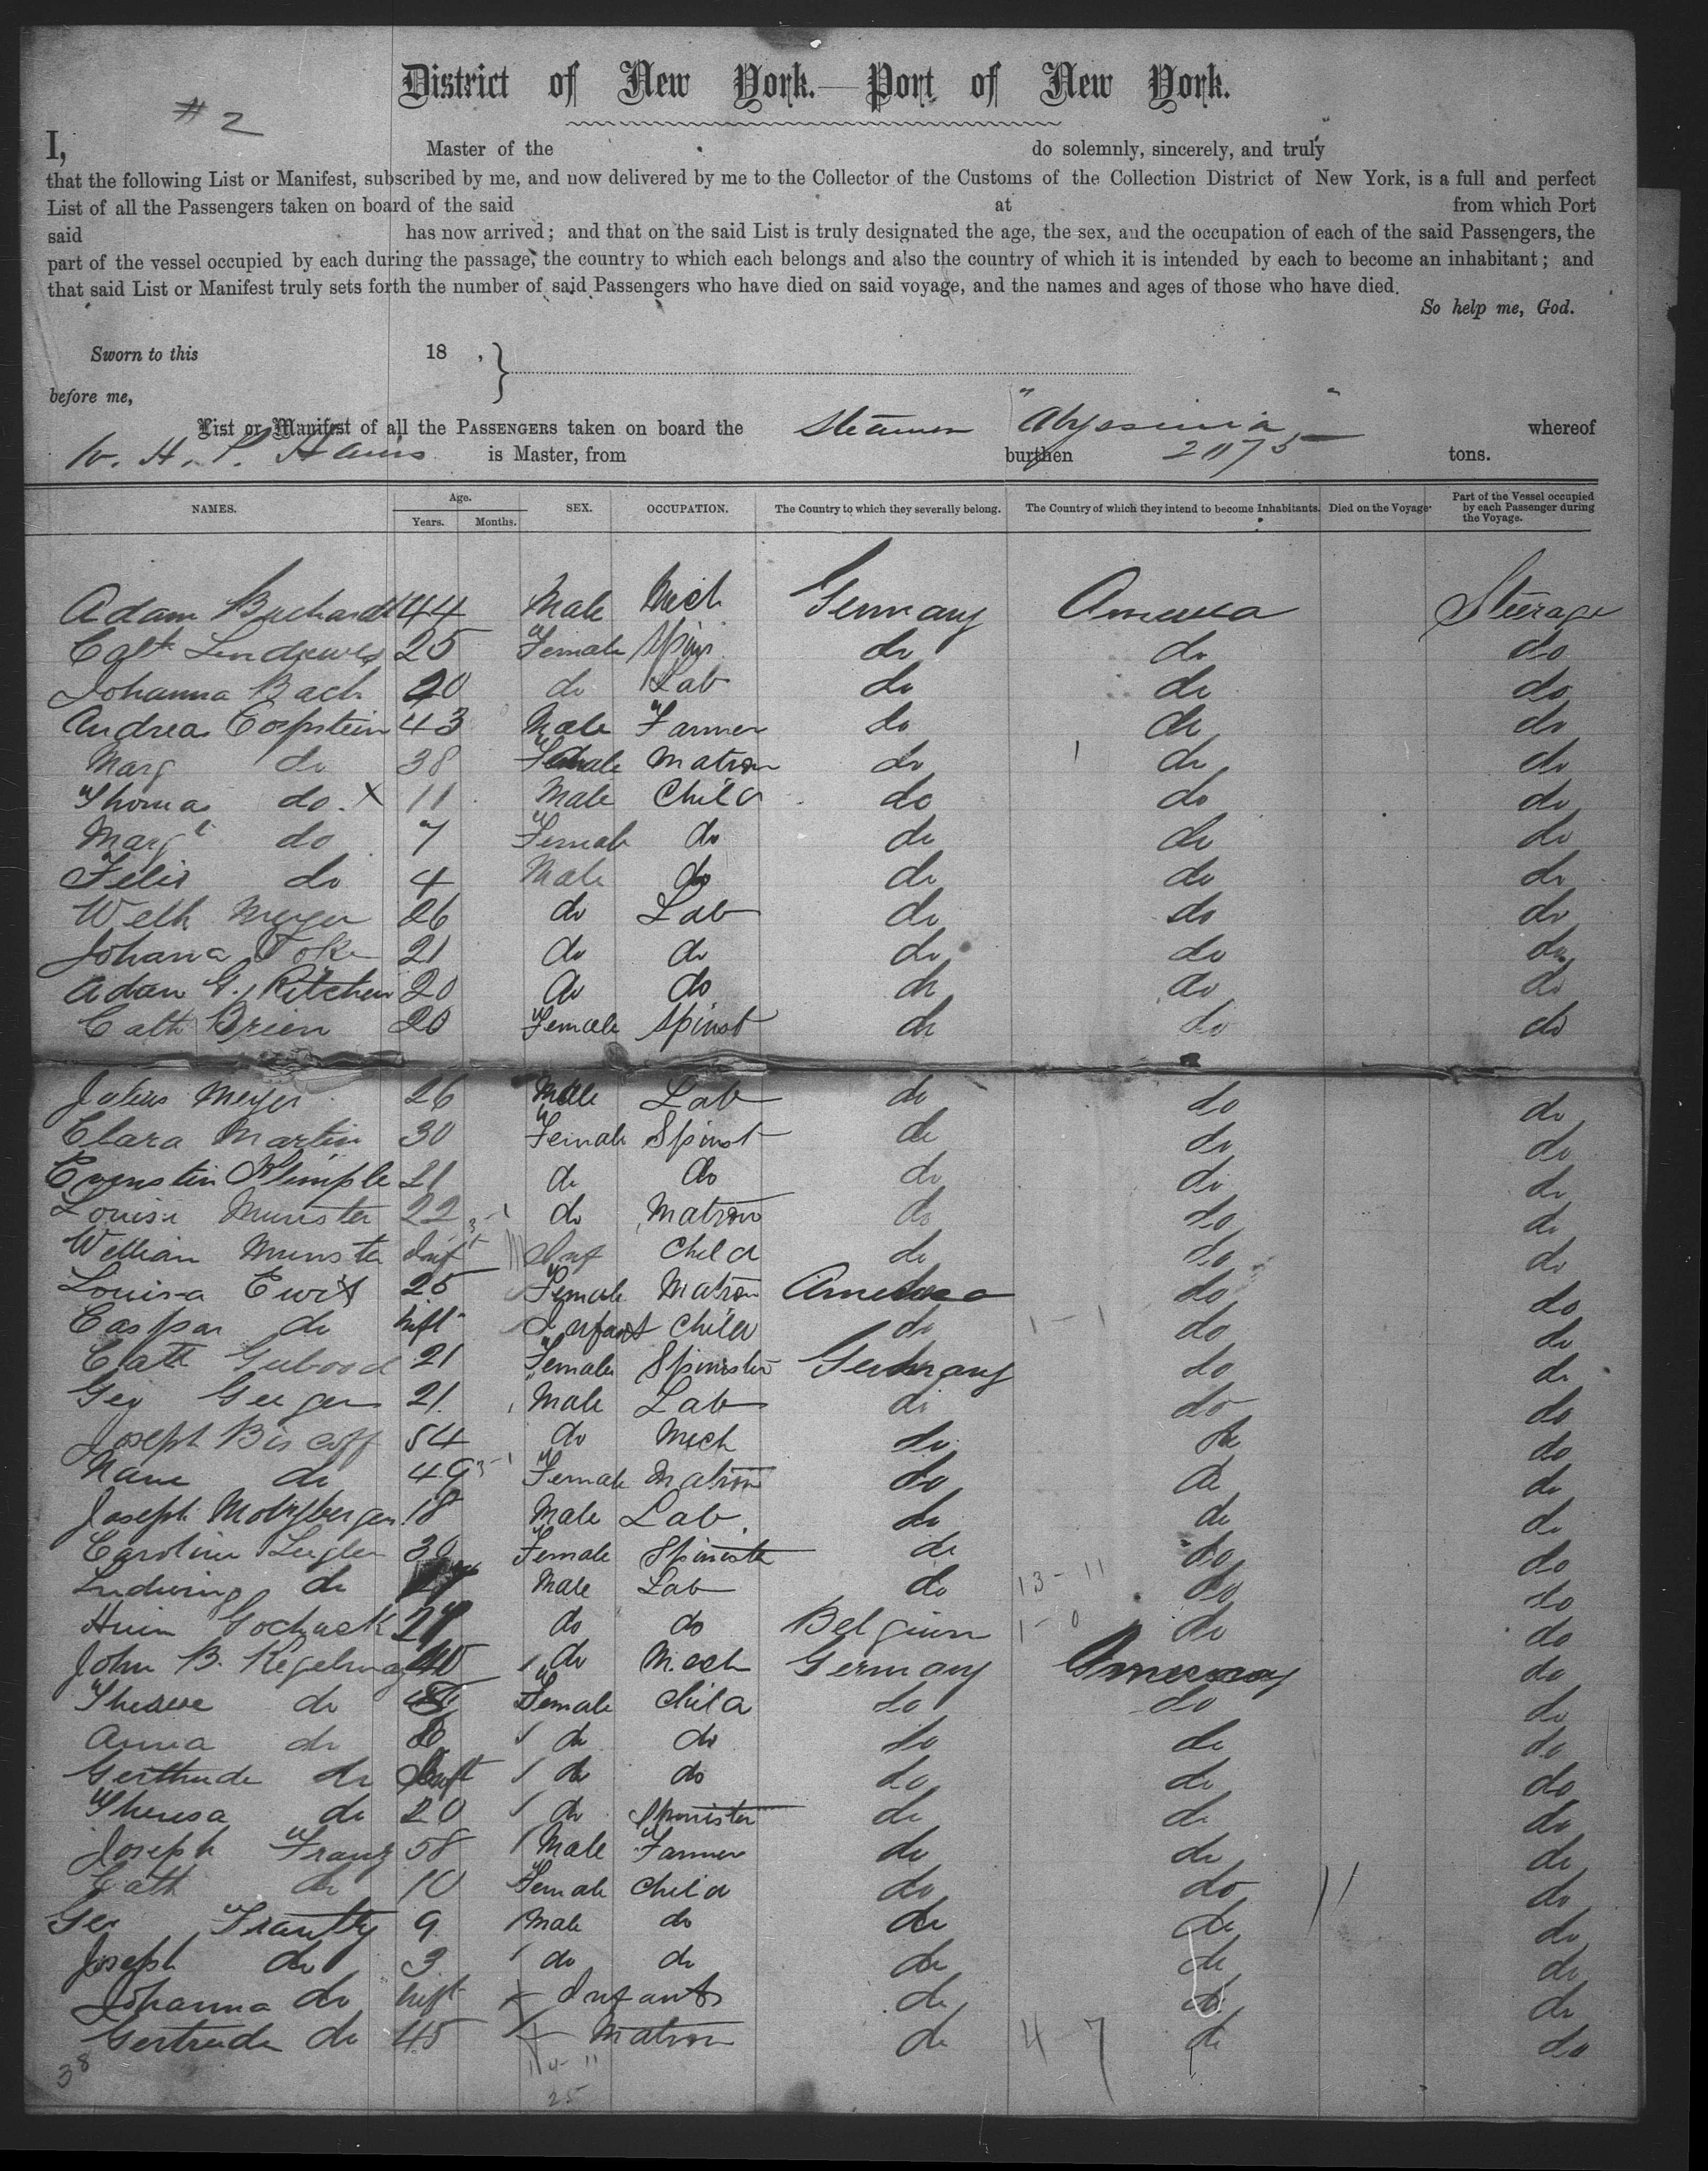 District of New York.—Port of New York.
# 2
I, Master of the do solemnly, sincerely, and truly
that the following List or Manifest, subscribed by me, and now delivered by me to the Collector of the Customs of the Collection District of New York, is a full and perfect
List of all the Passengers taken on board of the said at from which Port
said has now arrived; and that on the said List is truly designated the age, the sex, and the occupation of each of the said Passengers, the
part of the vessel occupied by each during the passage, the country to which each belongs and also the country of which it is intended by each to become an inhabitant; and
that said List or Manifest truly sets forth the number of said Passengers who have died on said voyage, and the names and ages of those who have died.
So help me, God.
Sworn to this 18 ,
before me,
List or Manifest of all the PASSENGERS taken on board the Steamer "Abyssinia" whereof
W. H. P. Hains is Master, from burthen 2075 tons.
NAMES. Age. Years. Months. SEX. OCCUPATION. The Country to which they severally belong. The Country of which they intend to become Inhabitants. Died on the Voyage. Part of the Vessel occupied by each Passenger during the Voyage.
Adam 44 Male Mech Germany America Steerage
25 Female Spins do do do
Johanna Bach 20 do Lab do do do
Andreas 43 Male Farmer do do do
Marg do 38 Female Matron do do do
Thomas do X 11 Male Child do do do
Margt do 7 Female do do do do
Felix do 4 Male do do do do
Welh Meyer 26 do Lab do do do
Johana 21 do do do do do
Adam G. Kitchen 20 do do do do do
Cath Brien 20 Female Spinst do do do
Julius Meyer 26 Male Lab do do do
Clara Martin 30 Female Spinst do do do
21 do do do do do
Louisa Munster 22 do Matron do do do
William Munster Inft Inf Child do do do
Louisa 25 Female Matron America do do
Caspar do Inft Infant Child do do do
Cath 21 Female Spinister Germany do do
Geo 21 Male Lab do do do
Joseph Biscoff 54 do Mech do do do
do 49 Female Matron do do do
Joseph 18 Male Lab do do do
Caroline 30 Female Spinister do do do
do Male Lab do do do
do do Belgium do do
John B. do Mech Germany do
Therese do Female Child do do do
Anna do 8 do do do do do
Gerthrude do Inft do do do do do
Theresa do 20 do Spinister do do do
Joseph Franz 58 Male Farmer do do do
Cath do 10 Female Child do do do
Geo 9 Male do do do do
Joseph do 3 do do do do do
Johanna do Inft Infant do do do
Gertrude do 45 Matron do do do
38
25